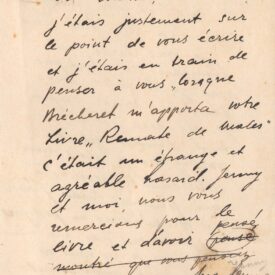 j'étais justement sur
le point de vous écrire
et j'étais en train de
penser à vous, lorsque
Brécheret m'apporta votre
livre „Remate de males"
c'était un étrange et
agréable hasard. Jenny
et moi, nous vous
remercions pour le
livre et d'avoir pensé
montré que vous pensiez